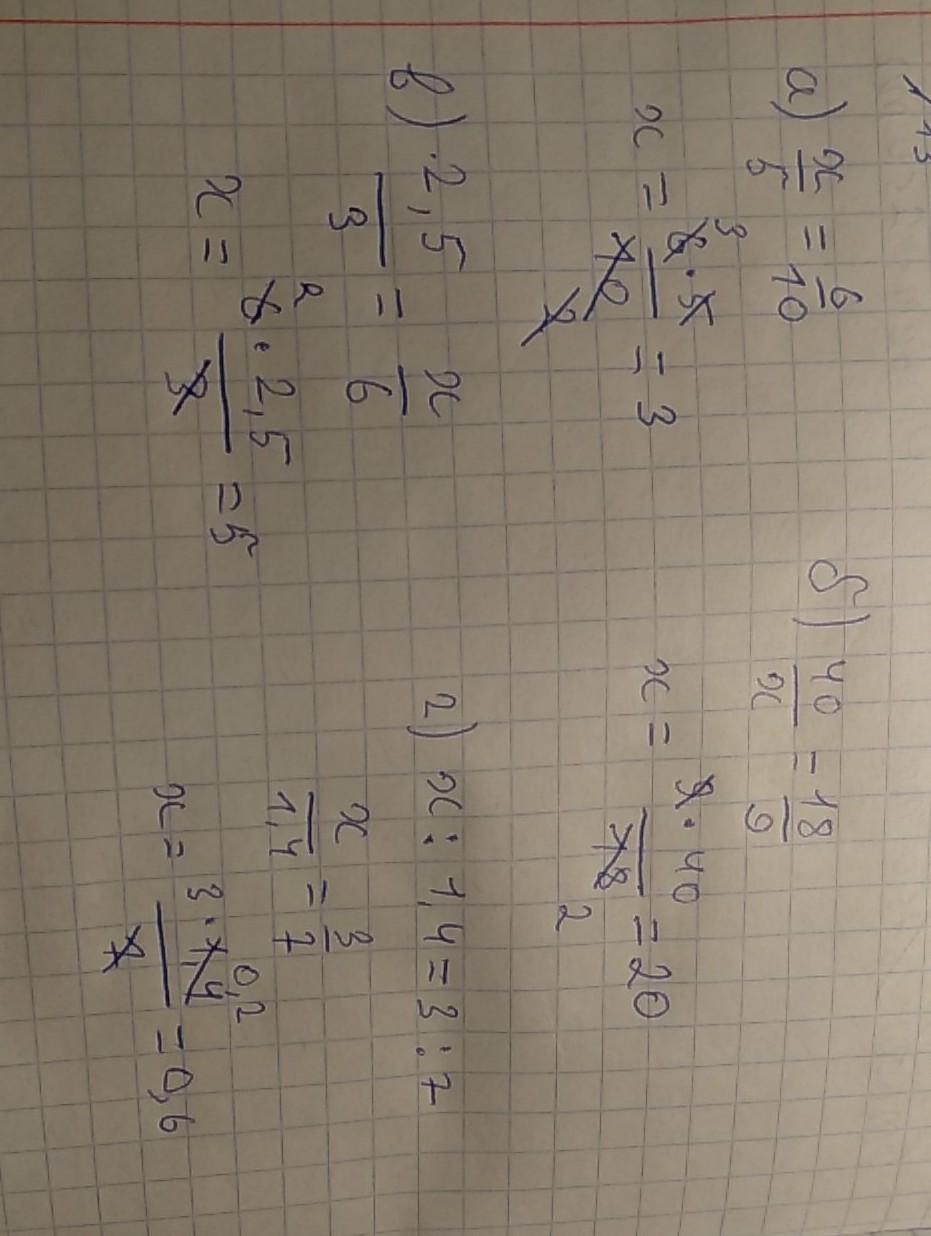 а) x/5 = 6/10
x = 6·5/10 = 3
3
2
б) 40/x = 18/9
x = 9·40/18 = 20
2
в) 2,5/3 = x/6
x = 6·2,5/3 = 5
2
г) x : 1,4 = 3 : 7
x/1,4 = 3/7
x = 3·1,4/7 = 0,6
0,2